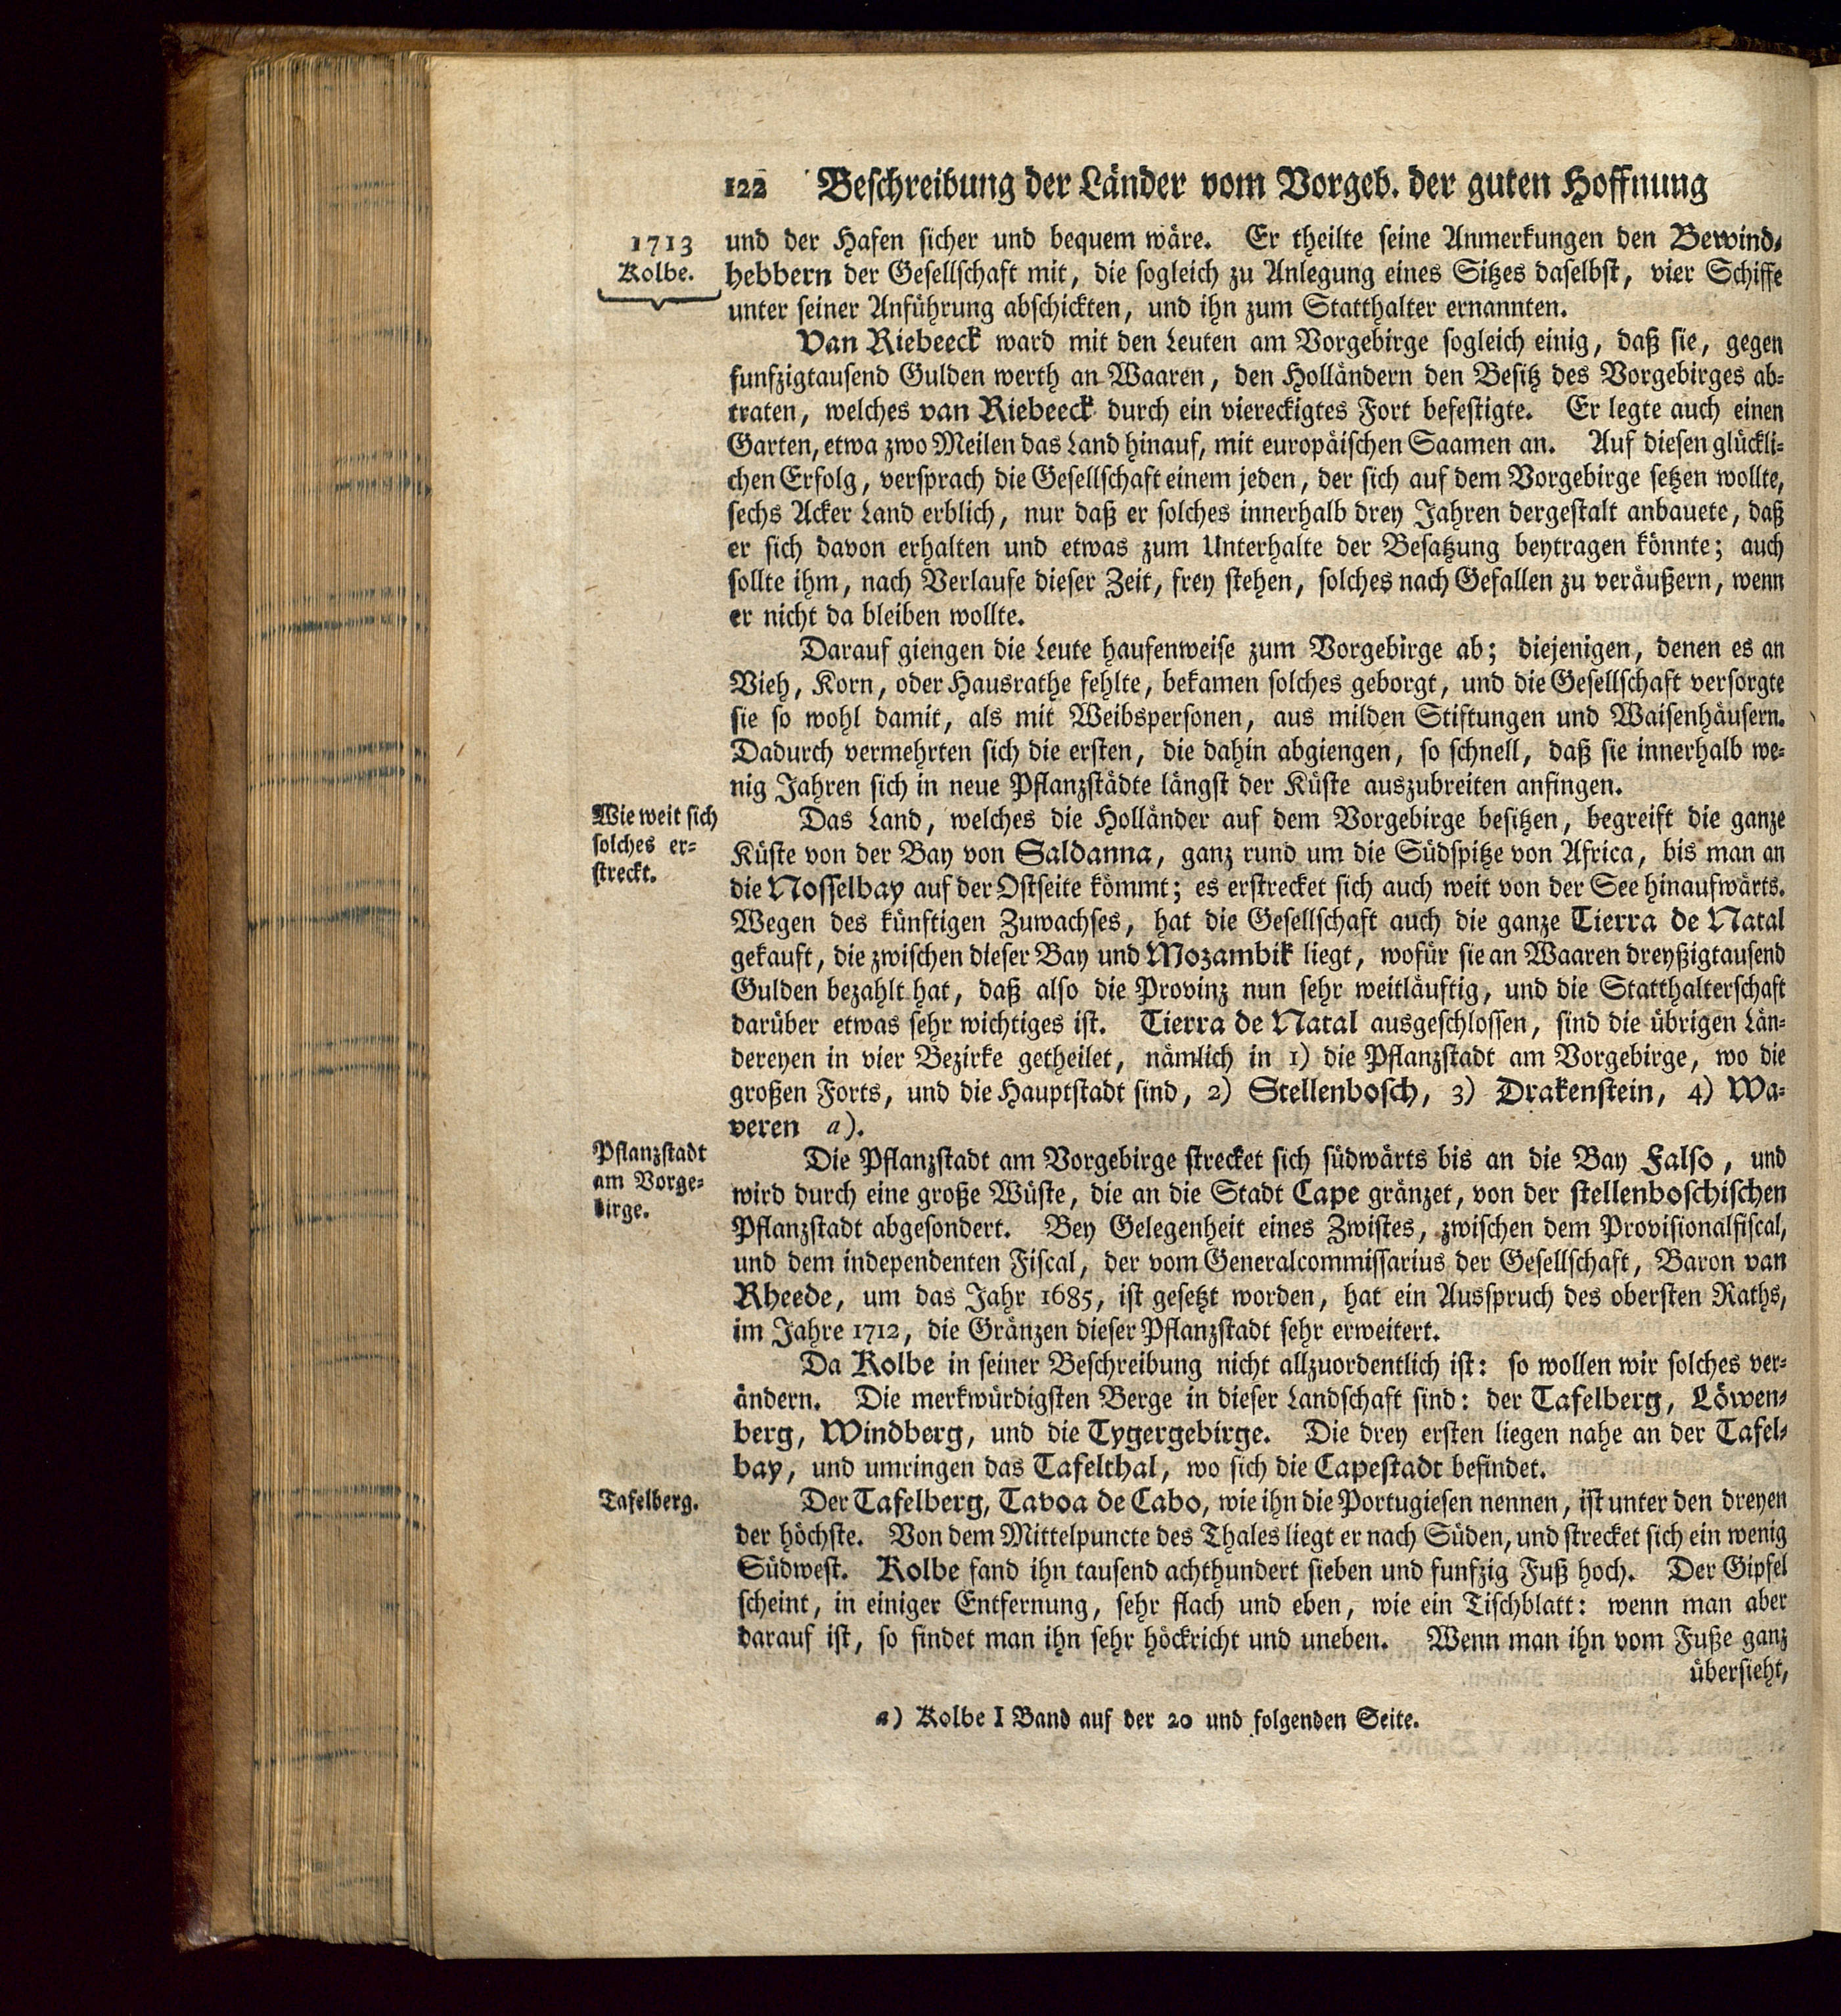 122 Beschreibung der Länder vom Vorgeb. der guten Hoffnung
1713
Kolbe.
und der Hafen sicher und bequem wäre. Er theilte seine Anmerkungen den Bewind-
hebbern der Gesellschaft mit, die sogleich zu Anlegung eines Sitzes daselbst, vier Schiffe
unter seiner Anführung abschickten, und ihn zum Statthalter ernannten.
Van Riebeeck ward mit den Leuten am Vorgebirge sogleich einig, daß sie, gegen
funfzigtausend Gulden werth an Waaren, den Holländern den Besitz des Vorgebirges ab-
traten, welches van Riebeeck durch ein viereckigtes Fort befestigte. Er legte auch einen
Garten, etwa zwo Meilen das Land hinauf, mit europäischen Saamen an. Auf diesen glückli-
chen Erfolg, versprach die Gesellschaft einem jeden, der sich auf dem Vorgebirge setzen wollte,
sechs Acker Land erblich, nur daß er solches innerhalb drey Jahren dergestalt anbauete, daß
er sich davon erhalten und etwas zum Unterhalte der Besatzung beytragen könnte; auch
sollte ihm, nach Verlaufe dieser Zeit, frey stehen, solches nach Gefallen zu veräußern, wenn
er nicht da bleiben wollte.
Darauf giengen die Leute haufenweise zum Vorgebirge ab; diejenigen, denen es an
Vieh, Korn, oder Hausrathe fehlte, bekamen solches geborgt, und die Gesellschaft versorgte
sie so wohl damit, als mit Weibspersonen, aus milden Stiftungen und Waisenhäusern.
Dadurch vermehrten sich die ersten, die dahin abgiengen, so schnell, daß sie innerhalb we-
nig Jahren sich in neue Pflanzstädte längst der Küste auszubreiten anfingen.
Wie weit sich
solches er-
streckt.
Das Land, welches die Holländer auf dem Vorgebirge besitzen, begreift die ganze
Küste von der Bay von Saldanna, ganz rund um die Südspitze von Africa, bis man an
die Nosselbay auf der Ostseite kömmt; es erstrecket sich auch weit von der See hinaufwärts.
Wegen des künftigen Zuwachses, hat die Gesellschaft auch die ganze Tierra de Natal
gekauft, die zwischen dieser Bay und Mozambik liegt, wofür sie an Waaren dreyßigtausend
Gulden bezahlt hat, daß also die Provinz nun sehr weitläuftig, und die Statthalterschaft
darüber etwas sehr wichtiges ist. Tierra de Natal ausgeschlossen, sind die übrigen Län-
dereyen in vier Bezirke getheilet, nämlich in 1) die Pflanzstadt am Vorgebirge, wo die
großen Forts, und die Hauptstadt sind, 2) Stellenbosch, 3) Drakenstein, 4) Wa-
veren a).
Pflanzstadt
am Vorge-
birge.
Die Pflanzstadt am Vorgebirge strecket sich südwärts bis an die Bay Falso, und
wird durch eine große Wüste, die an die Stadt Cape gränzet, von der stellenboschischen
Pflanzstadt abgesondert. Bey Gelegenheit eines Zwistes, zwischen dem Provisionalfiscal,
und dem independenten Fiscal, der vom Generalcommissarius der Gesellschaft, Baron van
Rheede, um das Jahr 1685, ist gesetzt worden, hat ein Ausspruch des obersten Raths,
im Jahre 1712, die Gränzen dieser Pflanzstadt sehr erweitert.
Da Kolbe in seiner Beschreibung nicht allzuordentlich ist: so wollen wir solches ver-
ändern. Die merkwürdigsten Berge in dieser Landschaft sind: der Tafelberg, Löwen-
berg, Windberg, und die Tygergebirge. Die drey ersten liegen nahe an der Tafel-
bay, und umringen das Tafelthal, wo sich die Capestadt befindet.
Tafelberg.
Der Tafelberg, Tavoa de Cabo, wie ihn die Portugiesen nennen, ist unter den dreyen
der höchste. Von dem Mittelpuncte des Thales liegt er nach Süden, und strecket sich ein wenig
Südwest. Kolbe fand ihn tausend achthundert sieben und funfzig Fuß hoch. Der Gipfel
scheint, in einiger Entfernung, sehr flach und eben, wie ein Tischblatt: wenn man aber
darauf ist, so findet man ihn sehr höckricht und uneben. Wenn man ihn vom Fuße ganz
übersieht,
a) Kolbe I Band auf der 20 und folgenden Seite.